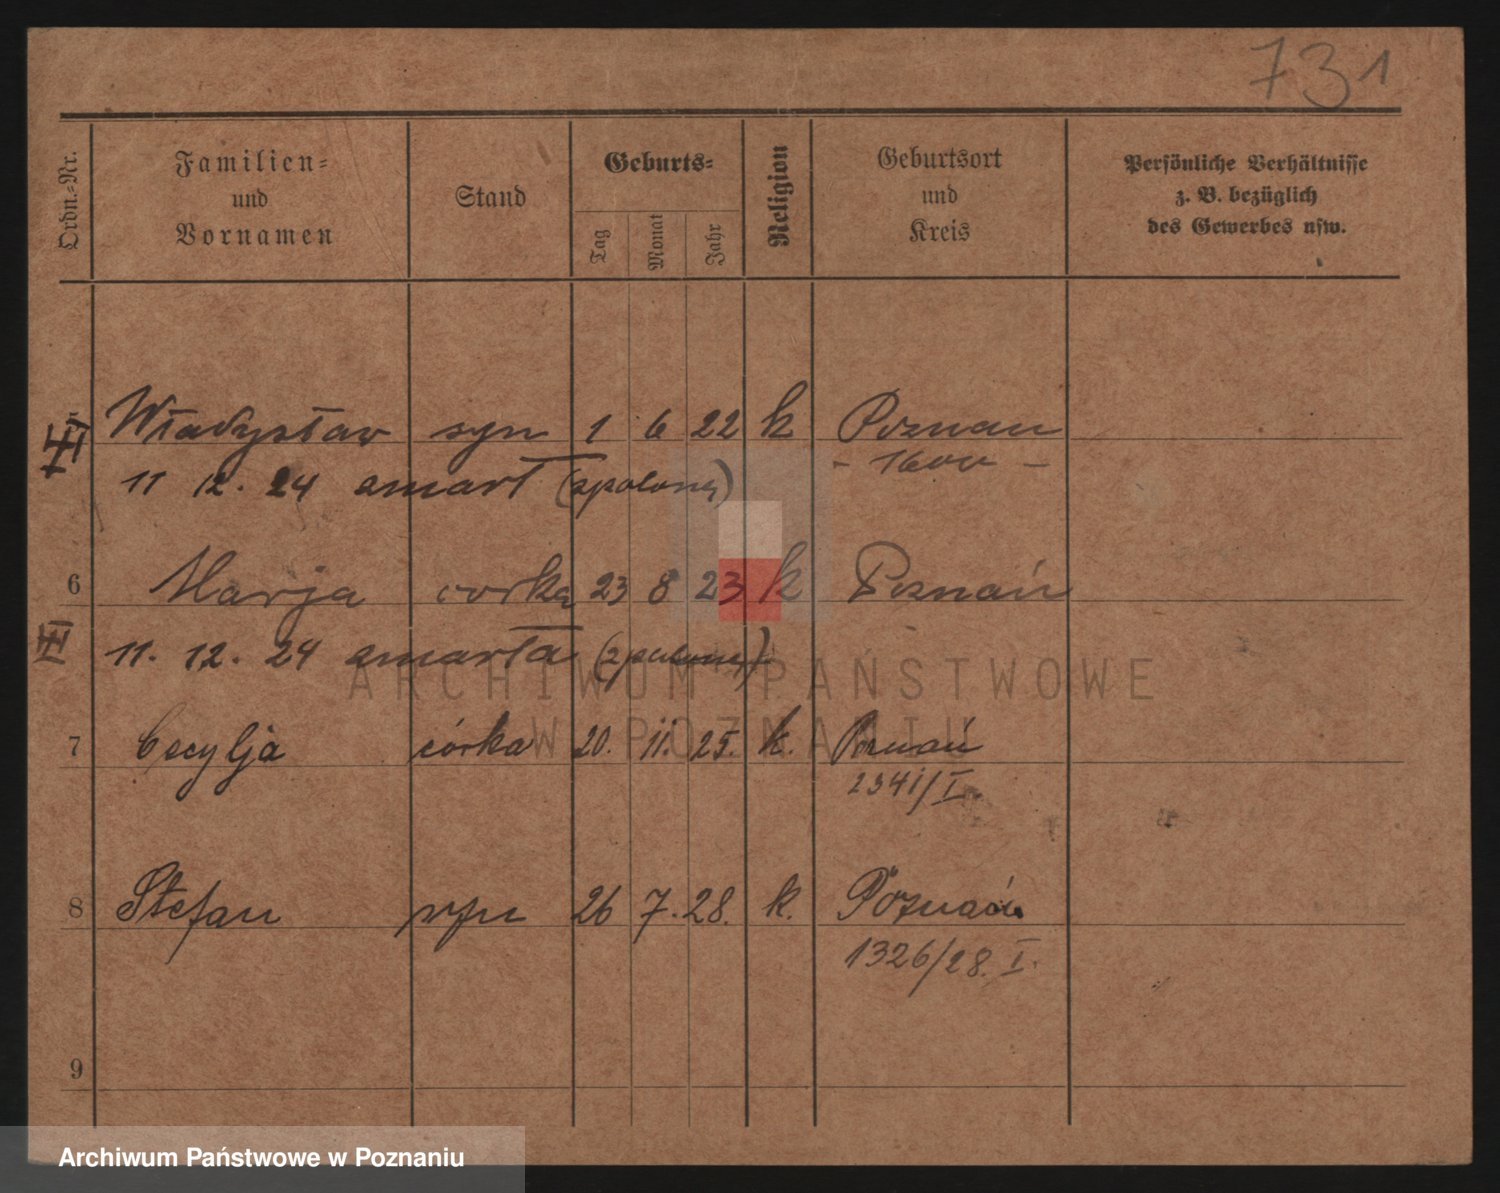 731
Ordn.-Nr.
Familien-
und
Vornamen
Stand
Geburts-
Tag
Monat
Jahr
Religion
Geburtsort
und
Kreis
Persönliche Verhältnisse
z. B. bezüglich
des Gewerbes usw.
5 Władysław syn 1 6 22 k Poznan
- 1600 -
11 12. 24 zmarł (spalony)
6 Marja corka 23 8 23 k Poznań
11. 12. 24 zmarła (spalona)
ARCHIWUM PAŃSTWOWE
W POZNANIU
7 Cecylja córka 20. 11. 25. k. Poznań
2341/I.
8 Stefan syn 26 7. 28. k. Poznań
1326/28. I.
9
Archiwum Państwowe w Poznaniu